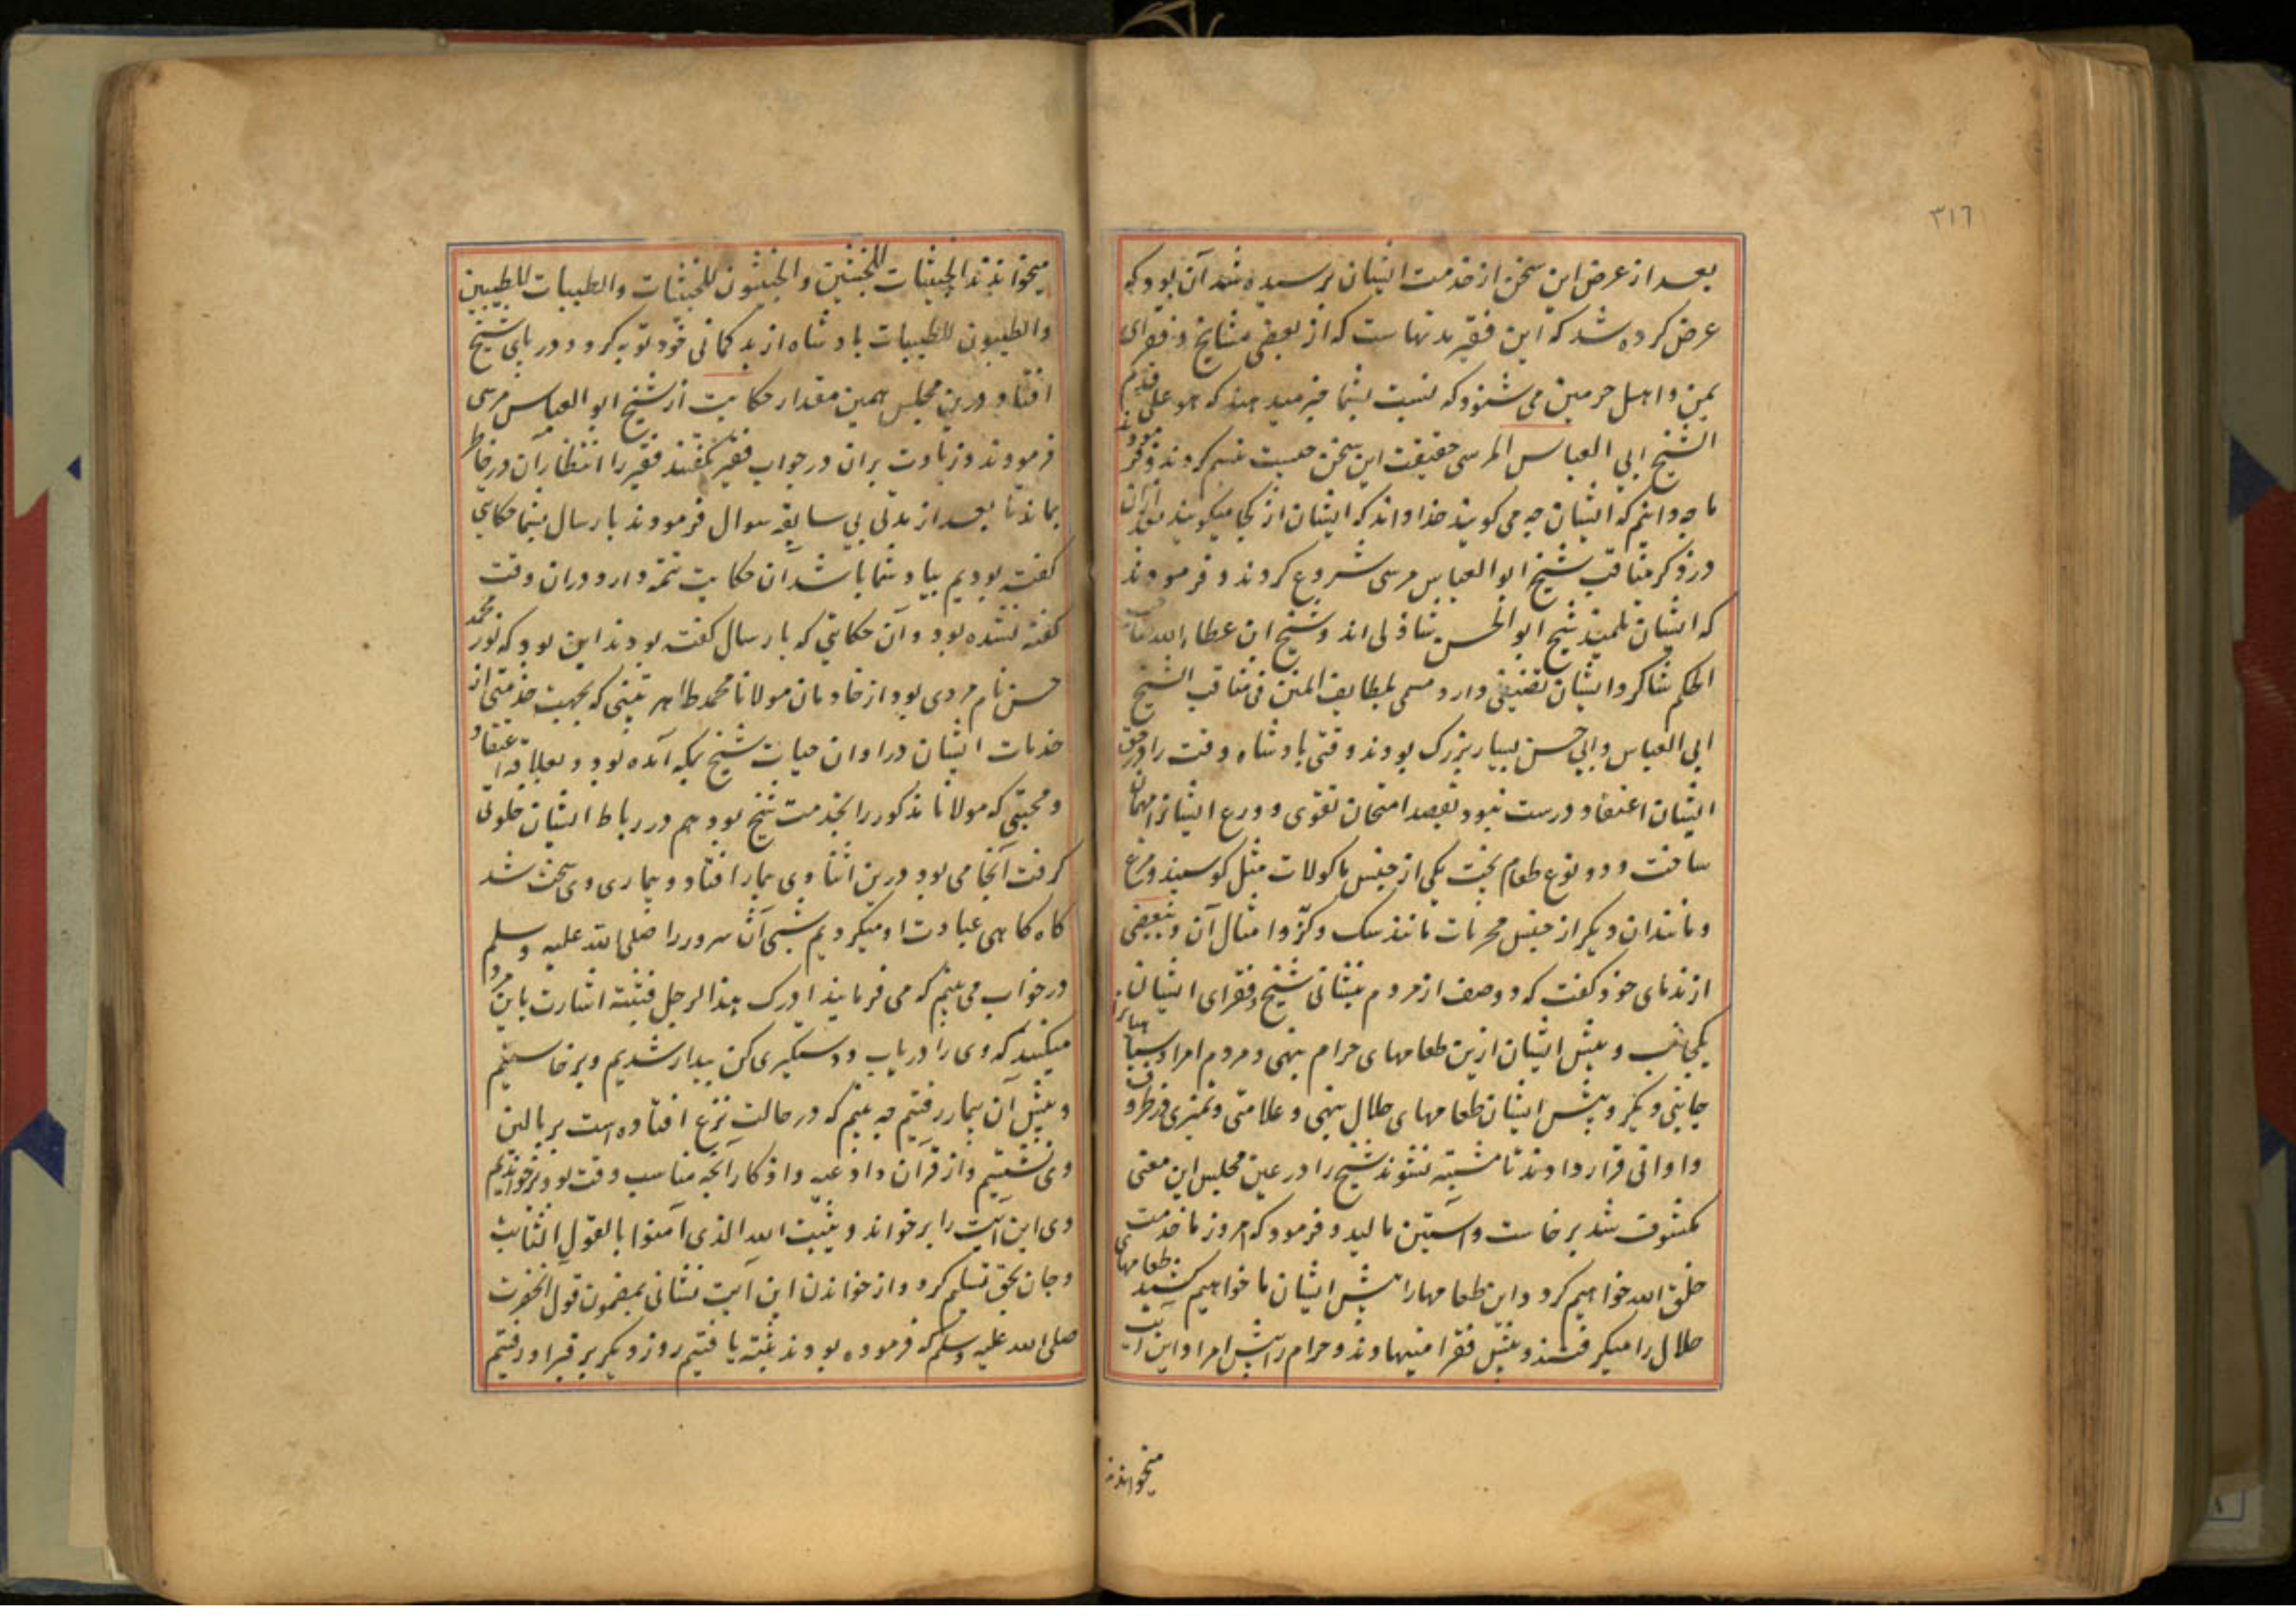 ٣١٦
بعد از عرض این سخن از خدمت ایشان پرسیده شد آن بود که
عرض کرده شد که این فقیر مدتهاست که از بعضی مشایخ و فقرای
یمن و اهل حرمین می شنود که نسبت بشما خبر میدهند که هو علی قدم
الشیخ ابی العباس المرسی حقیقت این سخن چیست تبسم کردند و فرمودند
ما چه دانیم که ایشان چه می گویند خدا داند که ایشان از کجا میگویند بعد ازان
در ذکر مناقب شیخ ابو العباس مرسی شروع کردند و فرمودند
که ایشان تلمیذ شیخ ابو الحسن شاذلی اند و شیخ ابن عطاء الله صاحب
الحکم شاکرد ایشان تصنیفی دارد مسمی بلطایف المنن فی مناقب الشیخ
ابی العباس و ابی حسن بسیار بزرک بودند وقتی بادشاه وقت را در حق
ایشان اعتقاد درست نبود بقصد امتحان تقوی و ورع ایشانرا مهمان
ساخت و دو نوع طعام پخت یکی از جنس ماکولات مثل کوسپند و مرغ
و مانند ان دیکر از جنس محرمات مانند سک و کژ و امثال آن و ببعضی
از ندمای خود کفت که دو صف از مردم بنشانی شیخ و فقرای ایشان را
یکجانب و پیش ایشان ازین طعامهای حرام بنهی و مردم امرا و سپاه را
جانبی دیکر و پیش ایشان طعامهای حلال بنهی و علامتی و تمیزی در ظروف
و اوانی قرار دادند تا مشتبه نشوند شیخ را در عین مجلس این معنی
مکشوف شد برخاست و آستین مالید و فرمود که امروز ما خدمت
خلق الله خواهیم کرد و این طعامها را پیش ایشان ما خواهیم کشید طعامهای
حلال را میکرفتند و پیش فقرا مینهادند و حرام را پیش امرا و این آیت
میخواندند
میخواندند الخبیثات للخبیثین و الخبیثون للخبیثات والطیبات للطیبین
والطیبون للطیبات بادشاه از بد کمانی خود توبه کرد و در پای شیخ
افتاد درین مجلس همین مقدار حکایت از شیخ ابو العباس مرسی
فرمودند و زیادت بران در جواب فقیر نکفتند فقیر را انتظار آن در خاطر
بماند تا بعد از مدتی بی سابقه سوال فرمودند پارسال بشما حکایتی
کفته بودیم بیاد شما باشد آن حکایت تتمه دارد دران وقت
کفته نشده بود و آن حکایتی که پارسال کفته بودند این بود که نور محمد
حسن نام مردی بود از خادمان مولانا محمد طاهر پتنی که بجهت خدمتی از
خدمات ایشان در اوان حیات شیخ بمکه آمده بود و بعلاقه اعتقاد
و محبتی که مولانا مذکور را بخدمت شیخ بود هم در رباط ایشان خلوتی
کرفت آنجا می بود درین اثنا وی بیمار افتاد و بیماری وی سخت شد
کاه کاهی عیادت او میکردیم شبی آن سرور را صلی الله علیه وسلم
در خواب می بینم که می فرمایند ادرک هذا الرجل فثبته اشارت باین مرد
میکنند که وی را دریاب و دستکیری کن بیدار شدیم و برخاستیم
و پیش آن بیمار رفتیم چه بینم که در حالت نزع افتاده است بر بالین
وی نشستیم و از قرآن و ادعیه و اذکار آنچه مناسب وقت بود برخواندیم
وی این آیت را برخواند و یثبت الله الذی آمنوا بالقول الثابت
و جان بحق تسلیم کرد و از خواندن این آیت نشانی بمضمون قول آنحضرت
صلی الله علیه وسلم که فرموده بودند ثبته یافتیم روز دیکر بر قبر او رفتیم